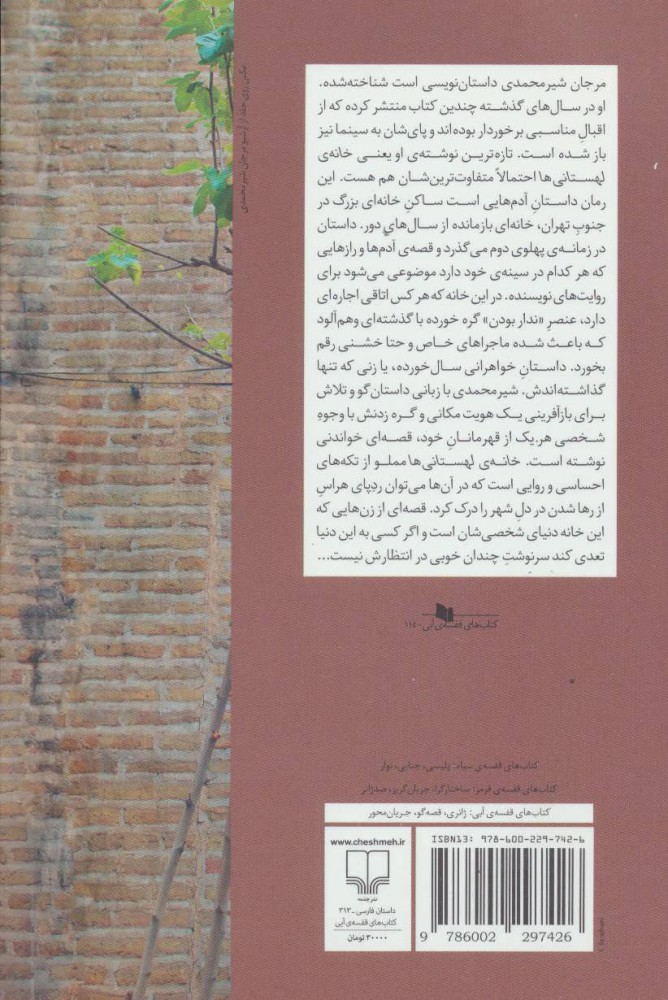 عکس روی جلد از آرشیو مرجان شیرمحمدی
مرجان شیرمحمدی داستان‌نویسی است شناخته‌شده.
او در سال‌های گذشته چندین کتاب منتشر کرده که از
اقبالِ مناسبی برخوردار بوده‌اند و پای‌شان به سینما نیز
باز شده است. تازه‌ترین نوشته‌ی او یعنی خانه‌ی
لهستانی‌ها احتمالاً متفاوت‌ترین‌شان هم هست. این
رمان داستانِ آدم‌هایی است ساکنِ خانه‌ای بزرگ در
جنوبِ تهران، خانه‌ای بازمانده از سال‌هایِ دور. داستان
در زمانه‌ی پهلوی دوم می‌گذرد و قصه‌ی آدم‌ها و رازهایی
که هر کدام در سینه‌ی خود دارد موضوعی می‌شود برای
روایت‌های نویسنده. در این خانه که هر کس اتاقی اجاره‌ای
دارد، عنصرِ «ندار بودن» گره خورده با گذشته‌ای وهم‌آلود
که باعث شده ماجراهای خاص و حتا خشنی رقم
بخورد. داستانِ خواهرانی سال‌خورده، یا زنی که تنها
گذاشته‌اندش. شیرمحمدی با زبانی داستان‌گو و تلاش
برای بازآفرینی یک هویت مکانی و گره زدنش با وجوهِ
شخصی هر یک از قهرمانانِ خود، قصه‌ای خواندنی
نوشته است. خانه‌ی لهستانی‌ها مملو از تکه‌های
احساسی و روایی است که در آن‌ها می‌توان ردِپای هراسِ
از رها شدن در دلِ شهر را درک کرد. قصه‌ای از زن‌هایی که
این خانه دنیای شخصی‌شان است و اگر کسی به این دنیا
تعدی کند سرنوشتِ چندان خوبی در انتظارش نیست...
کتاب‌های قفسه‌ی آبی - ۱۱٤
کتاب‌های قفسه‌ی سیاه: پلیسی، جنایی، نوآر
کتاب‌های قفسه‌ی قرمز: ساختارگرا، جریان‌گریز، ضدژانر
کتاب‌های قفسه‌ی آبی: ژانری، قصه‌گو، جریان‌محور
ISBN13: 978-600-229-742-6
9 786002 297426
www.cheshmeh.ir
نشر چشمه
داستان فارسی ـ ۳۱۳
کتاب‌های قفسه‌ی آبی
۳۰۰۰۰ تومان